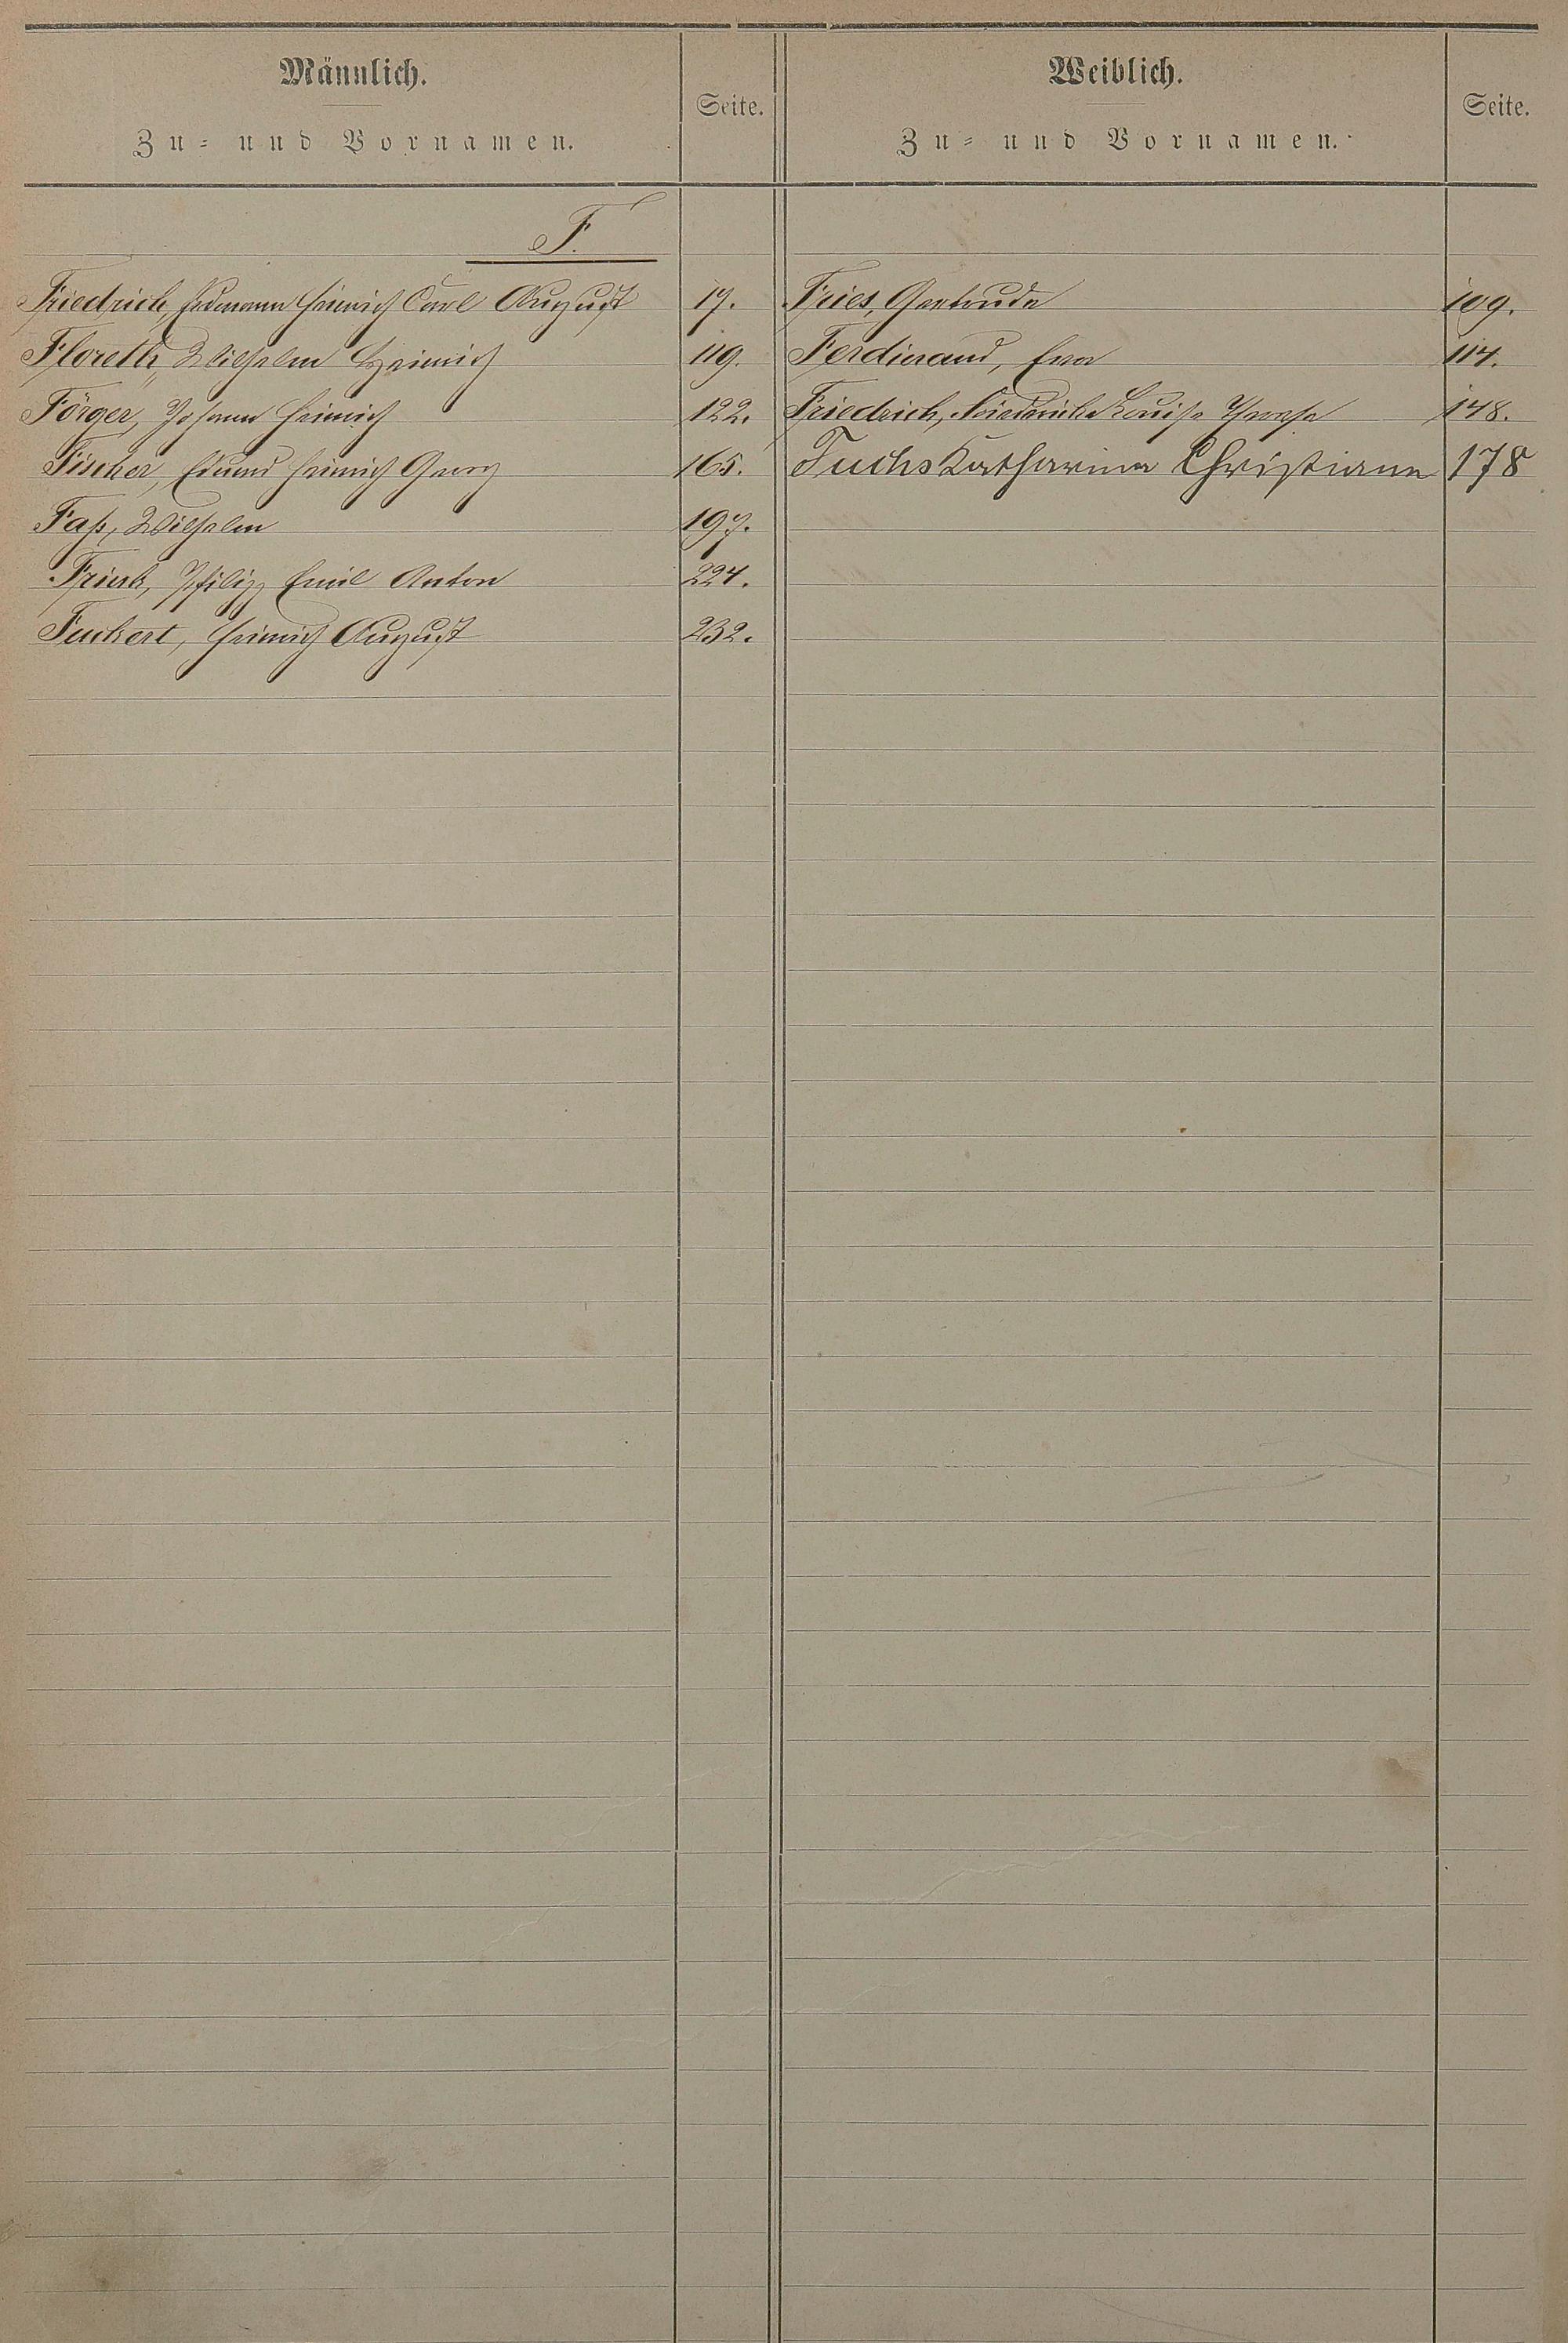 Männlich.
Zu- und Vornamen.
Seite.
Weiblich.
Zu- und Vornamen.
Seite.
F.
Friedrich, Erdmann Heinrich Carl August 17.
Floreth, Wilhelm Heinrich 119.
Förger, Johann Heinrich 122.
Fischer, Eduard Heinrich Georg 165.
Faß, Wilhelm 197.
Frink, Philipp Emil Anton 224.
Fuckert, Heinrich August 232.
Fries, Gertrude 109.
Ferdinand, Eva 114.
Friedrich, Friedericke Louise Therese 148.
Fuchs Katharina Christiane 178